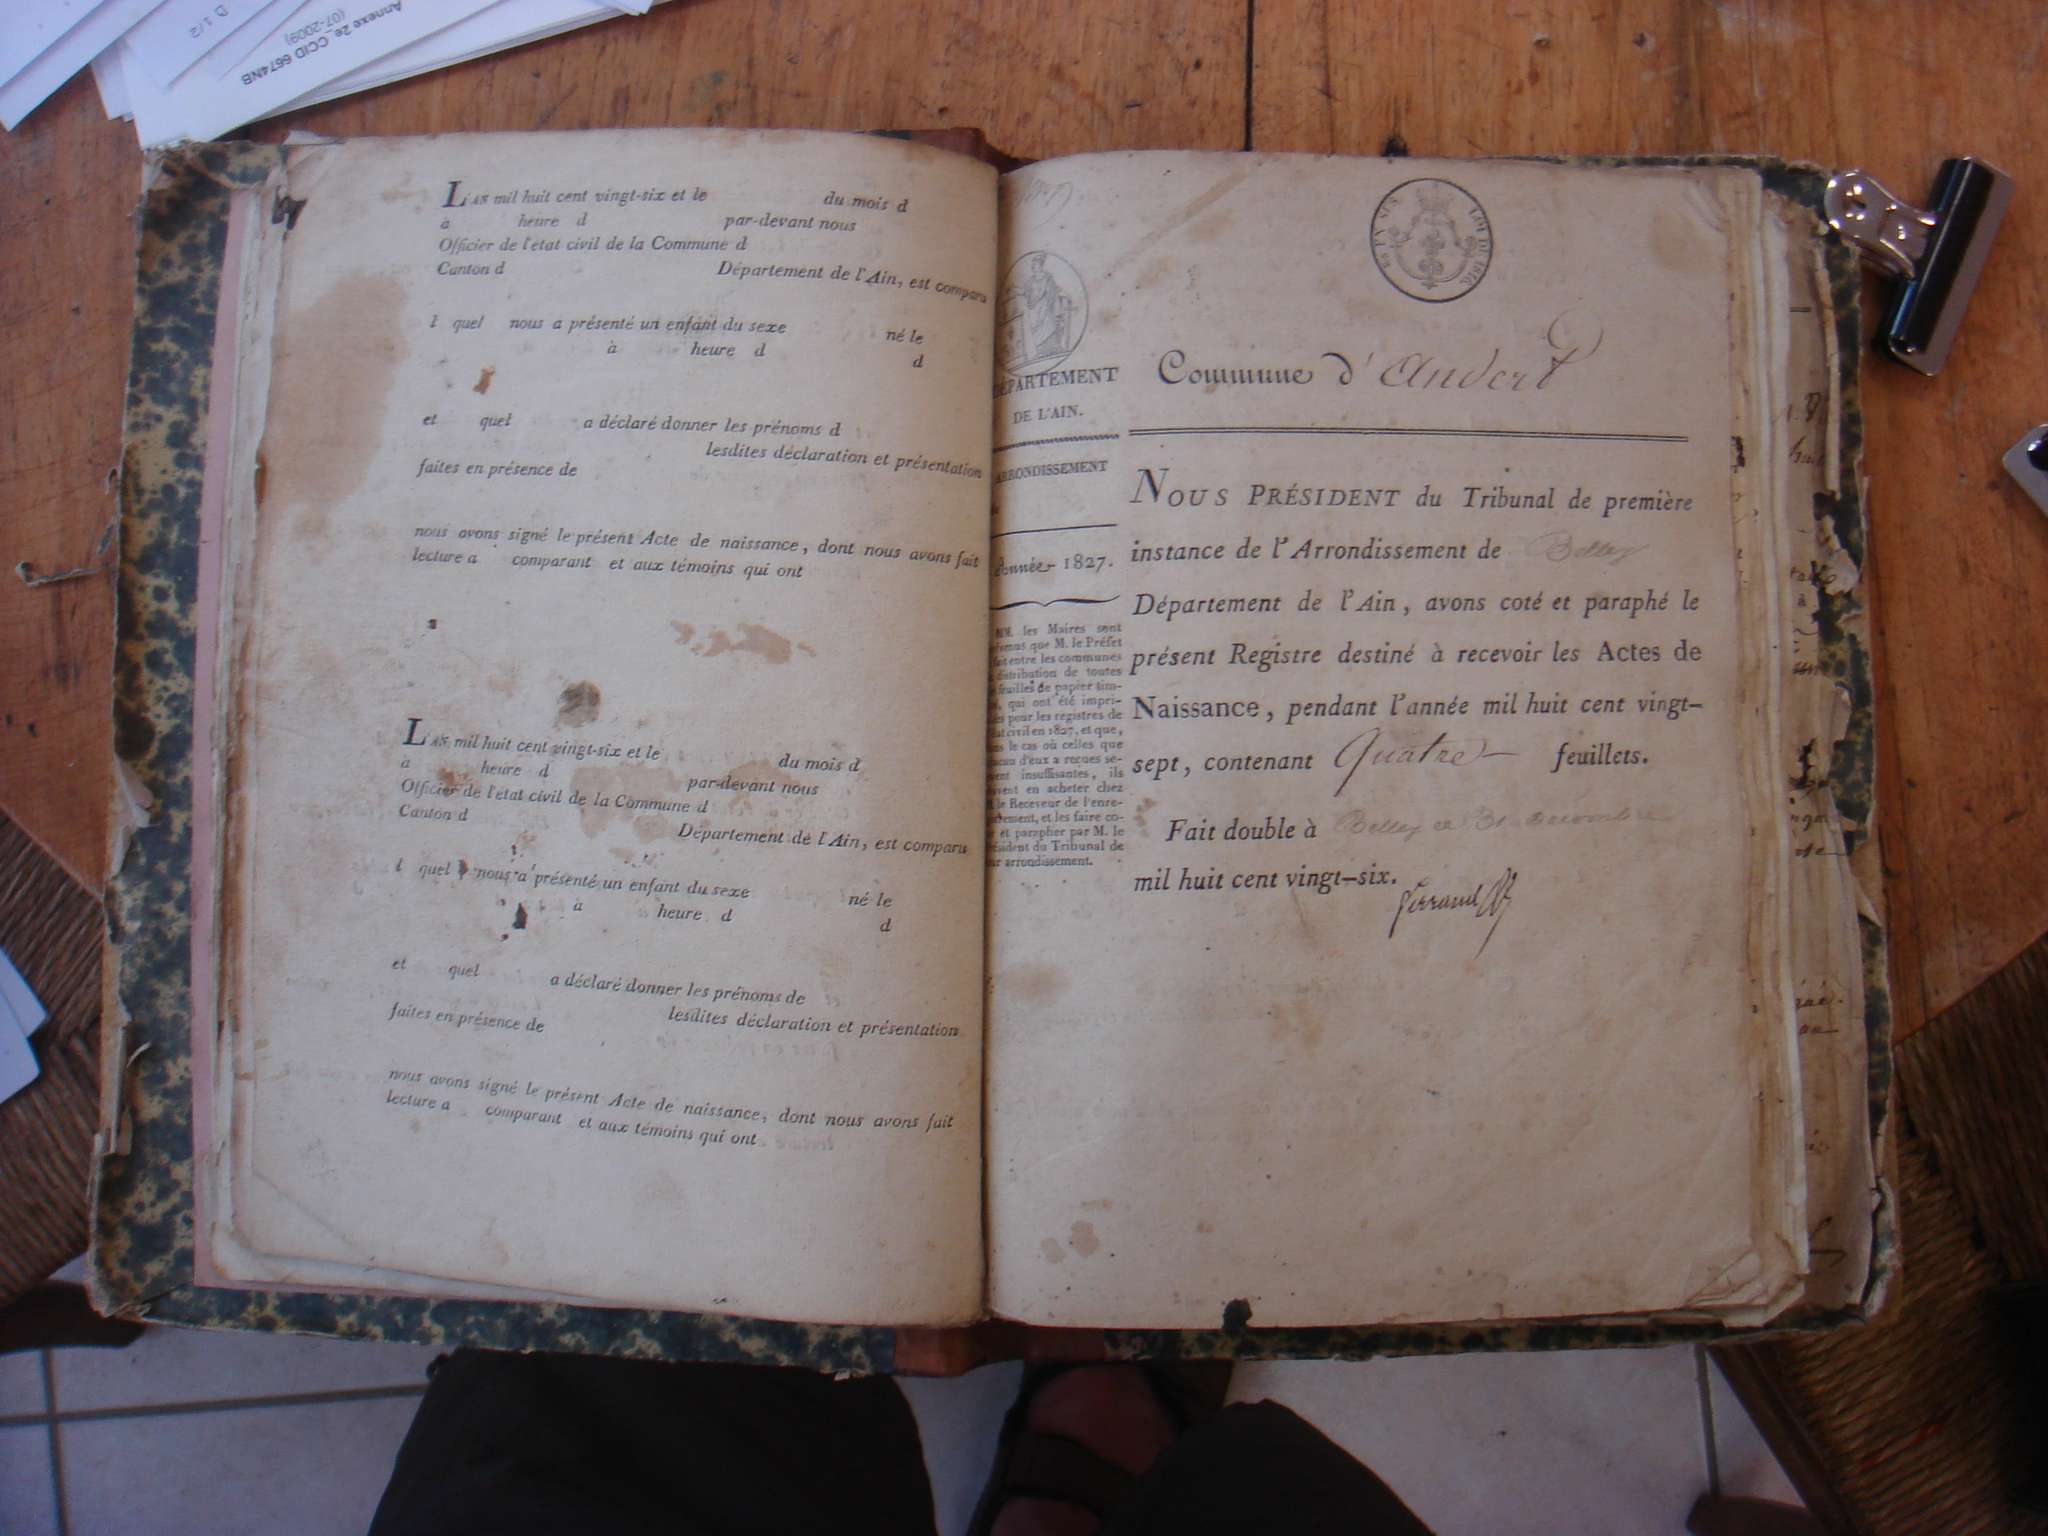 Annexe 2e CCID 6674NB
(07-2009)
D 1/2
L'AN mil huit cent vingt-six et le du mois d
à heure d par-devant nous
Officier de l'etat civil de la Commune d
Canton d Département de l'Ain, est comparu
l quel nous a présenté un enfant du sexe né le
à heure d
d
et quel a déclaré donner les prénoms d
lesdites déclaration et présentation
faites en présence de
nous avons signé le présent Acte de naissance, dont nous avons fait
lecture a comparant et aux témoins qui ont
L'AN mil huit cent vingt-six et le du mois d
à heure d par-devant nous
Officier de l'etat civil de la Commune d
Canton d Département de l'Ain, est comparu
l quel nous a présenté un enfant du sexe né le
à heure d
d
et quel a déclaré donner les prénoms de
lesdites déclaration et présentation
faites en présence de
nous avons signé le présent Acte de naissance, dont nous avons fait
lecture a comparant et aux témoins qui ont
DÉPARTEMENT
DE L'AIN.
ARRONDISSEMENT
Année 1827.
MM. les Maires sont
que M. le Préfet
entre les communes
distribution de toutes
feuilles de papier tim-
qui ont été impri-
pour les registres de
civil en 1827, et que,
le cas où celles que
d'eux a reçues se-
insuffisantes, ils
en acheter chez
le Receveur de l'enre-
et les faire co-
et parapher par M. le
du Tribunal de
arrondissement.
LOI DE 1816
Commune d' Andert
NOUS PRÉSIDENT du Tribunal de première
instance de l'Arrondissement de Belley
Département de l'Ain, avons coté et paraphé le
présent Registre destiné à recevoir les Actes de
Naissance, pendant l'année mil huit cent vingt-
sept, contenant Quatre feuillets.
Fait double à Belley ce 31 décembre
mil huit cent vingt-six.